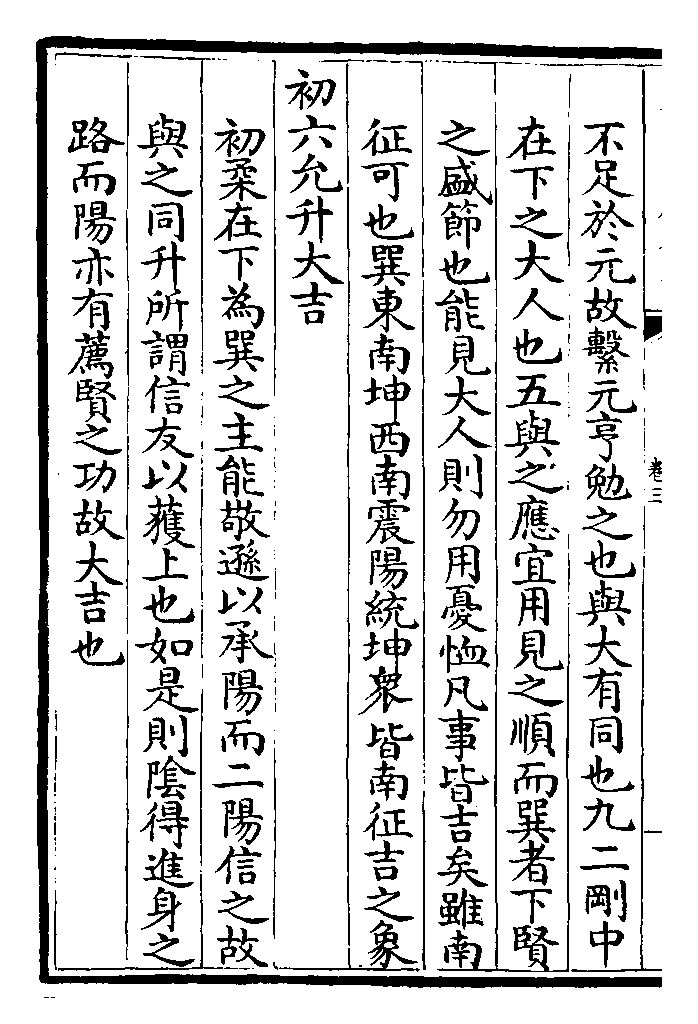 卷三
不足於元故繫元亨勉之也與大有同也九二剛中
在下之大人也五與之應宜用見之順而巽者下賢
之盛節也能見大人則勿用憂恤凡事皆吉矣雖南
征可也巽東南坤西南震陽統坤衆皆南征吉之象
初六允升大吉
初柔在下為巽之主能敬遜以承陽而二陽信之故
與之同升所謂信友以獲上也如是則陰得進身之
路而陽亦有薦賢之功故大吉也